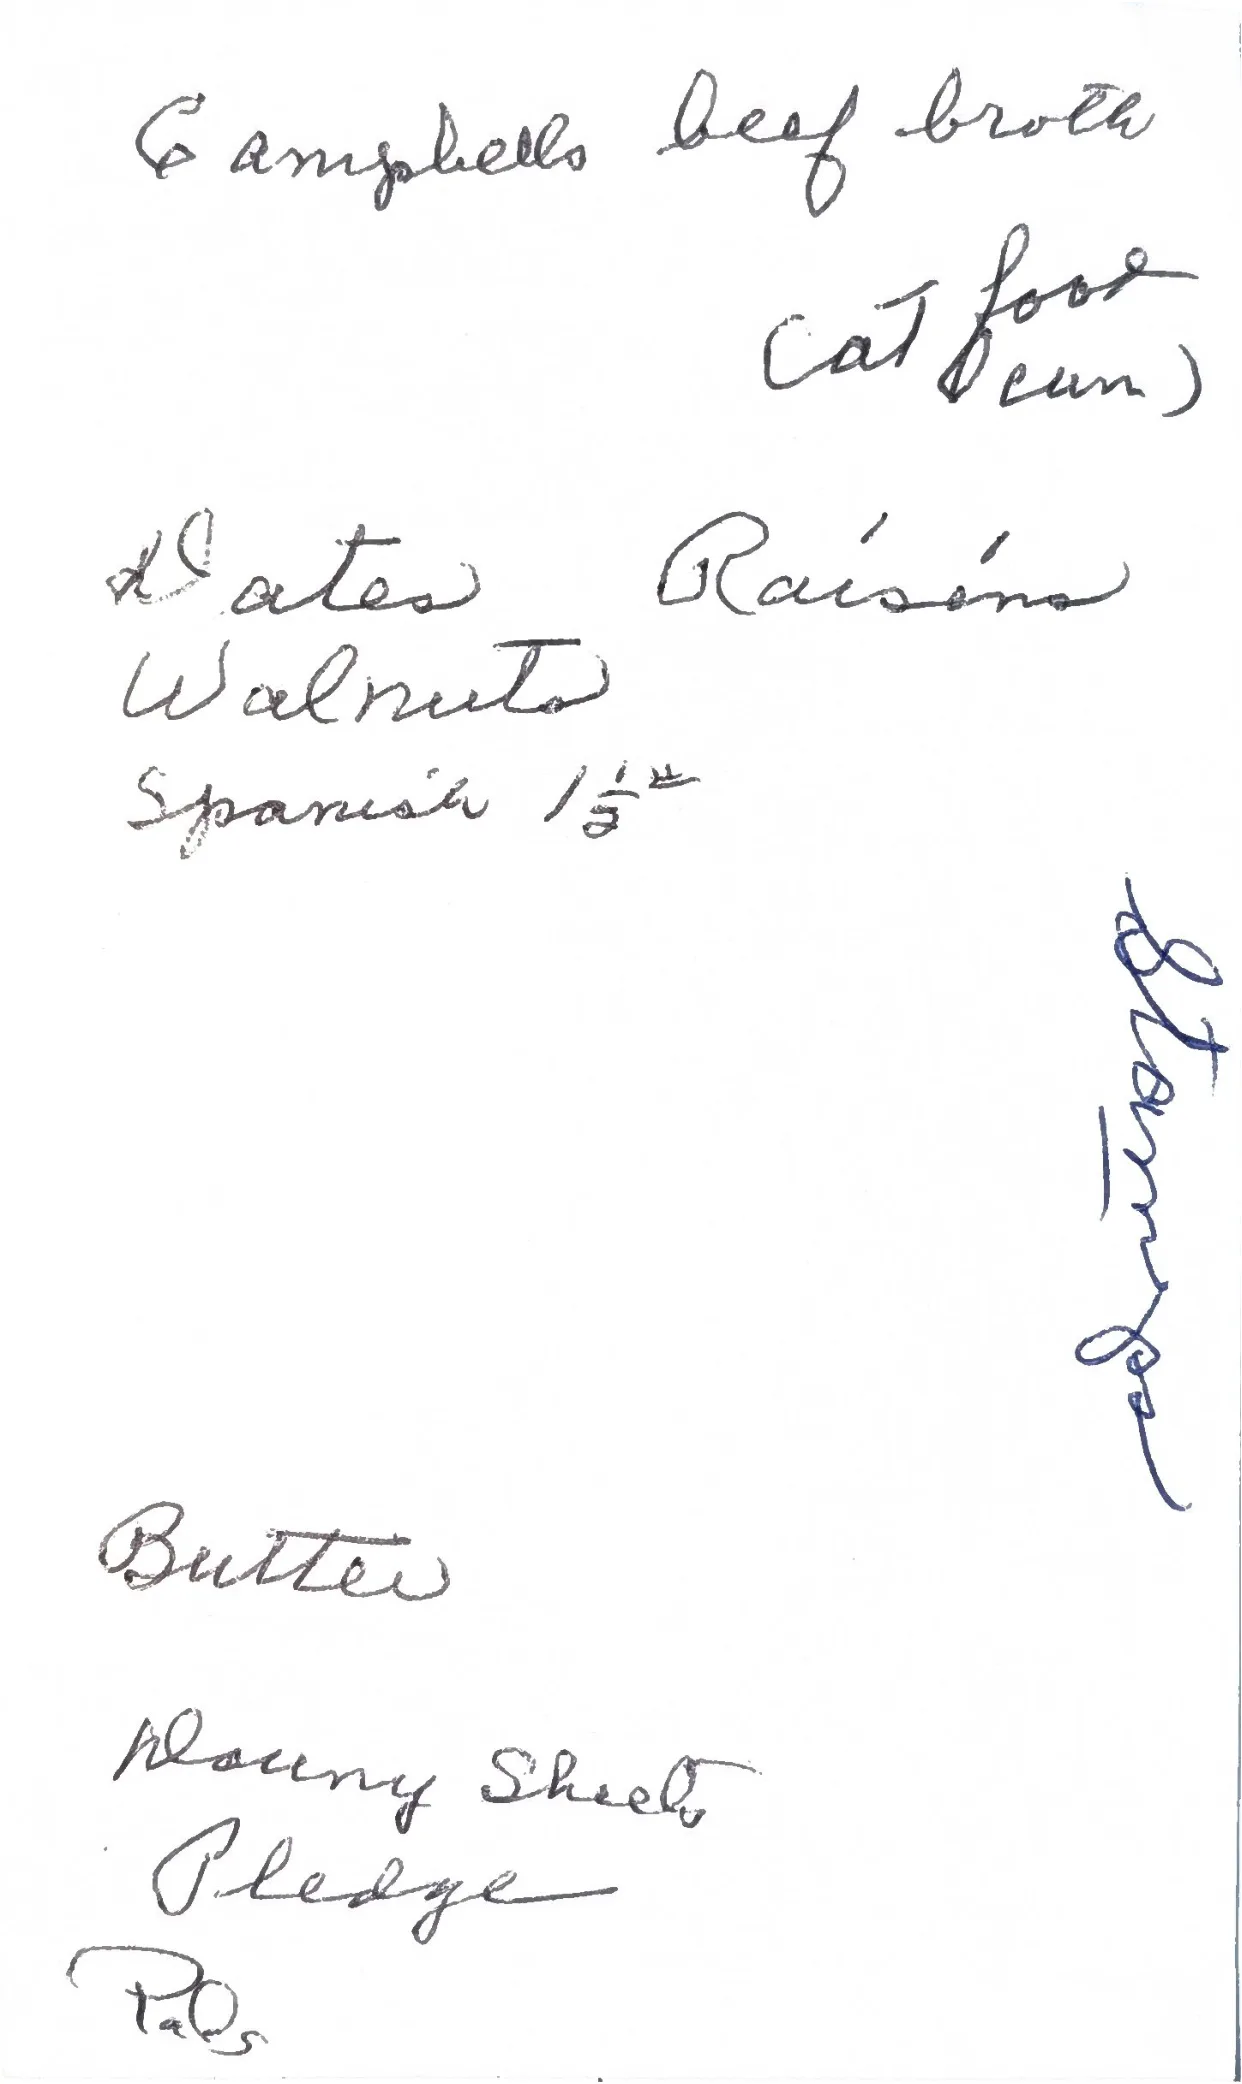 Campbells beef broth
Cat food
(cum)
Dates Raisins
Walnuts
Spanish 1 1/2 #
Butter
Downy Sheets
Pledge
Pads